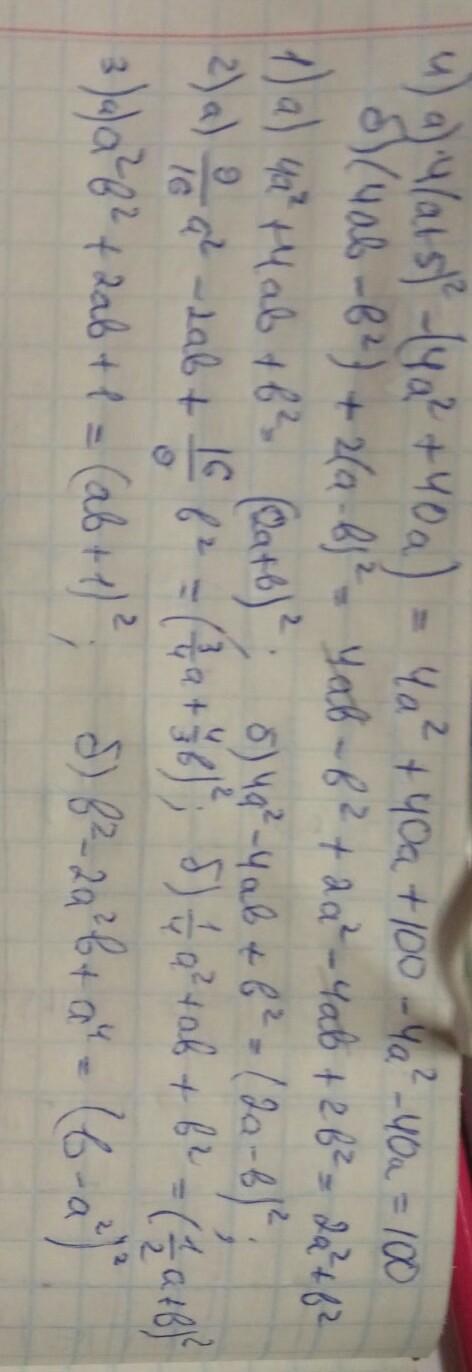 4) а) 4(a+5)² - (4a² + 40a) = 4a² + 40a + 100 - 4a² - 40a = 100
б) (4ab - b²) + 2(a - b)² = 4ab - b² + 2a² - 4ab + 2b² = 2a² + b²
1) а) 4a² + 4ab + b² = (2a+b)²; б) 4a² - 4ab + b² = (2a - b)²;
2) а) 9/16 a² - 2ab + 16/9 b² = (3/4 a + 4/3 b)²; б) 1/4 a² + ab + b² = (1/2 a + b)²
3) а) a²b² + 2ab + 1 = (ab + 1)²; б) b² - 2a²b + a⁴ = (b - a²)²